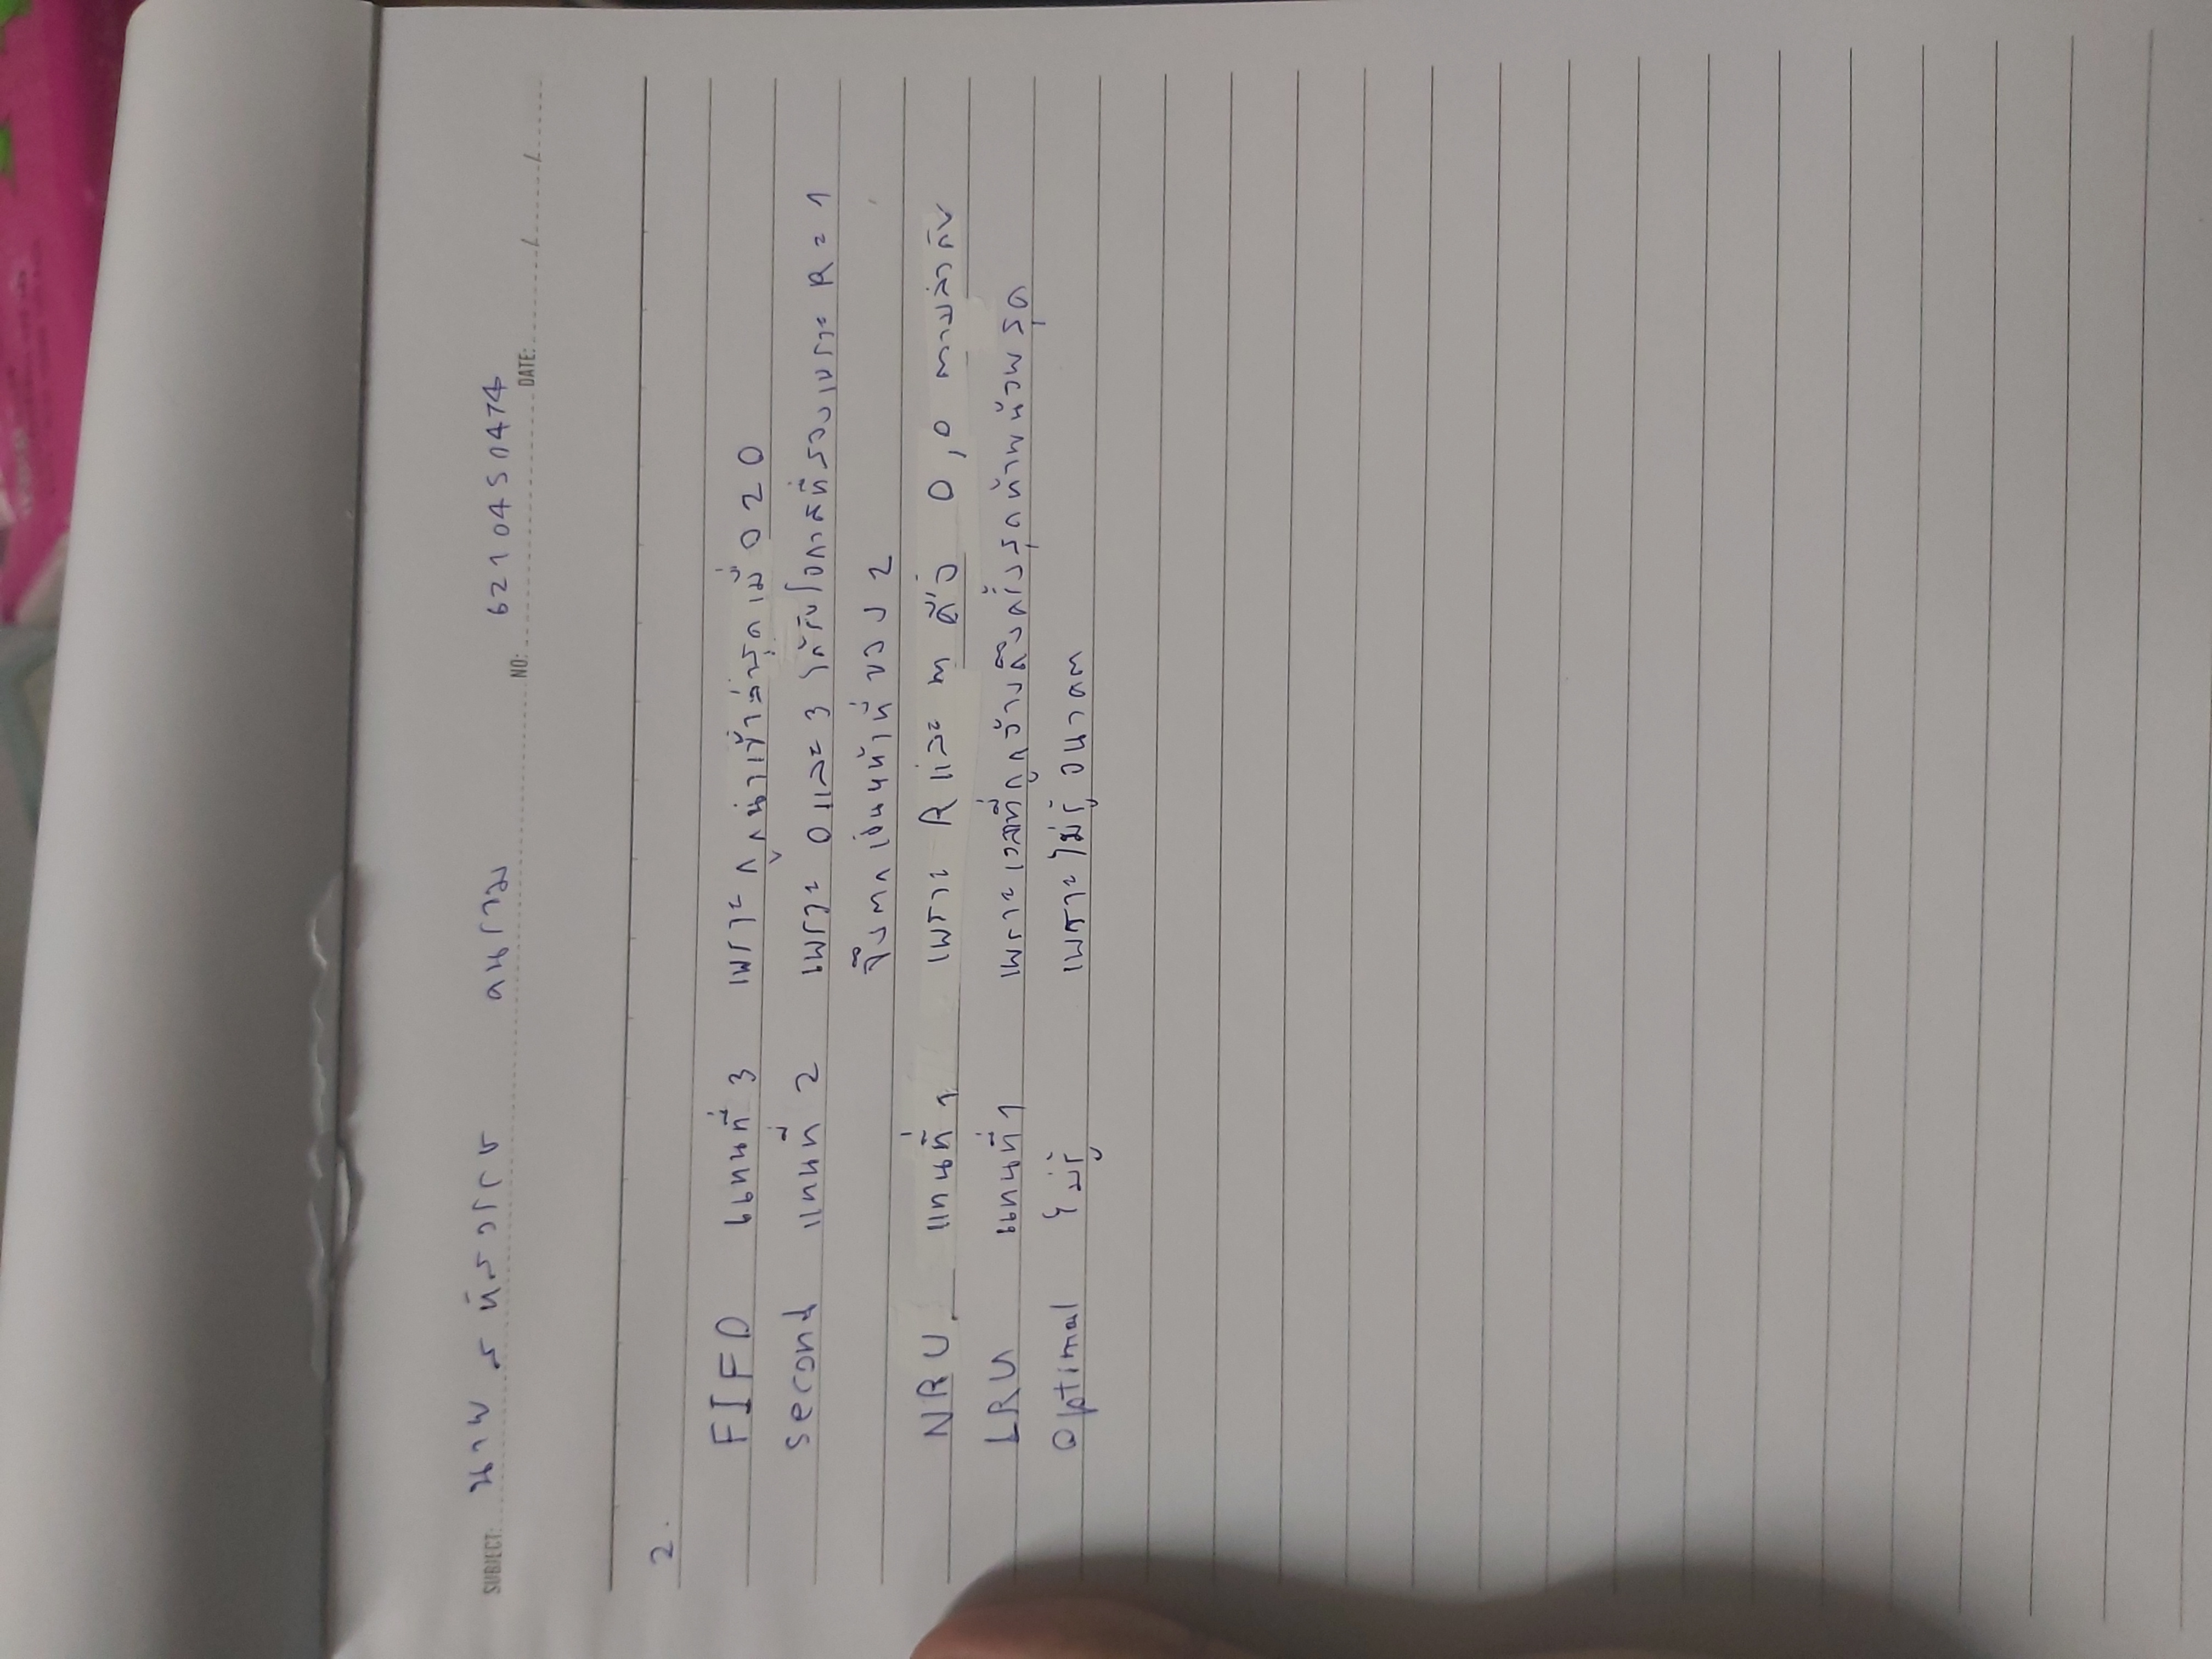 SUBJECT: นาย สหัสวรรษ คนรวม NO: 6210450474 DATE: / /
2.
FIFO แทนที่ 3 เพราะ ถูกนำเข้าล่าสุด เมื่อ 20
second แทนที่ 2 เพราะ 0 และ 3 ได้รับโอกาสที่สองเพราะ R = 1
จึงตกเป็นหน้าที่ของ 2
NRU แทนที่ 1 เพราะ R และ m คือ 0,0 ตามลำดับ
LRU แทนที่ 1 เพราะเวลาที่ถูกอ้างถึงครั้งสุดท้ายน้อยสุด
optimal ไม่รู้ เพราะไม่รู้อนาคต